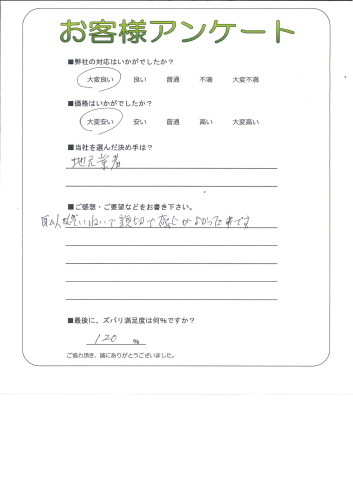 お客様アンケート
■弊社の対応はいかがでしたか？
大変良い 良い 普通 不満 大変不満
■価格はいかがでしたか？
大変安い 安い 普通 高い 大変高い
■当社を選んだ決め手は？
地元業者
■ご感想・ご要望などをお書き下さい。
ていねいで親切で感じがよかったです
■最後に、ズバリ満足度は何％ですか？
120 %
ご協力頂き、誠にありがとうございました。